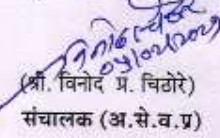 (श्री. विनोद प्र. चिठोरे)
संचालक (अ.से.व.प्र)